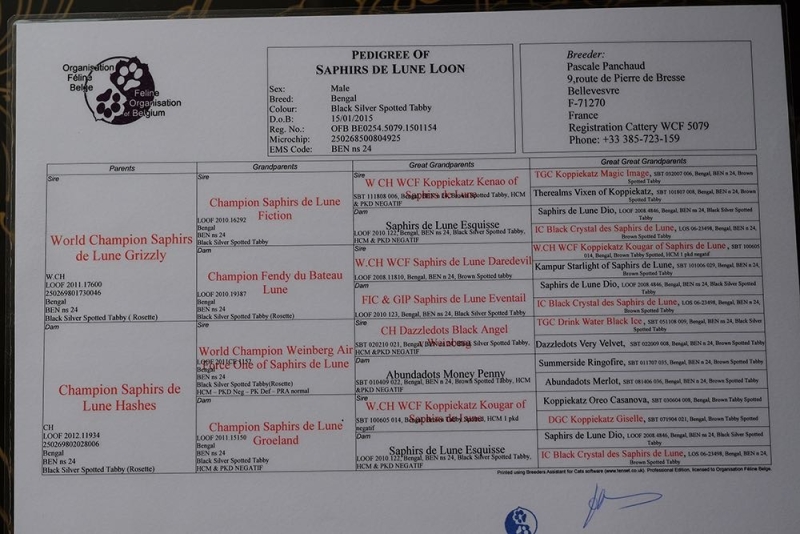 Organisation
Féline
Belge
Feline
Organisation
of Belgium
PEDIGREE OF
SAPHIRS DE LUNE LOON
Sex: Male
Breed: Bengal
Colour: Black Silver Spotted Tabby
D.o.B: 15/01/2015
Reg. No.: OFB BE0254.5079.1501154
Microchip: 250268500804925
EMS Code: BEN ns 24
Breeder:
Pascale Panchaud
9,route de Pierre de Bresse
Bellevesvre
F-71270
France
Registration Cattery WCF 5079
Phone: +33 385-723-159
Parents
Sire
World Champion Saphirs
de Lune Grizzly
W.CH
LOOF 2011.17600
250269801730046
Bengal
BEN ns 24
Black Silver Spotted Tabby ( Rosette)
Dam
Champion Saphirs de
Lune Hashes
CH
LOOF 2012.11934
250269802028006
Bengal
BEN ns 24
Black Silver Spotted Tabby (Rosette)
Grandparents
Sire
Champion Saphirs de Lune
Fiction
LOOF 2010.16292
Bengal
BEN ns 24
Black Silver Spotted Tabby
Dam
Champion Fendy du Bateau
Lune
LOOF 2010.19387
Bengal
BEN ns 24
Black Silver Spotted Tabby (Rosette)
Sire
World Champion Weinberg Air
Force One of Saphirs de Lune
Bengal
BEN ns 24
Black Silver Spotted Tabby(Rosette)
HCM - PKD Neg - PK Def - PRA normal
Dam
Champion Saphirs de Lune
Groeland
LOOF 2011.15150
Bengal
BEN ns 24
Black Silver Spotted Tabby
HCM & PKD NEGATIF
Great Grandparents
Sire
W CH WCF Koppiekatz Kenao of
Saphirs de Lune
SBT 111808 006, Bengal, BEN n 24, Brown Spotted Tabby, HCM
& PKD NEGATIF
Dam
Saphirs de Lune Esquisse
LOOF 2010.122, Bengal, BEN ns 24, Black Silver Spotted Tabby,
HCM & PKD NEGATIF
Sire
W.CH WCF Saphirs de Lune Daredevil
LOOF 2008.11810, Bengal, BEN n 24, Brown Spotted tabby
Dam
FIC & GIP Saphirs de Lune Eventail
LOOF 2010.123, Bengal, BEN ns 24, Black Silver Spotted Tabby
Sire
CH Dazzledots Black Angel
Weinberg
SBT 020210 021, Bengal, BEN ns 24, Black Silver Spotted Tabby,
HCM &PKD NEGATIF
Dam
Abundadots Money Penny
SBT 010409 022, Bengal, BEN n 24, Brown Spotted Tabby,
HCM &PKD NEGATIF
Sire
W.CH WCF Koppiekatz Kougar of
Saphirs de Lune
SBT 100605 014, Bengal, Brown Spotted Tabby, HCM 1 pkd
negatif
Dam
Saphirs de Lune Esquisse
LOOF 2010.122, Bengal, BEN ns 24, Black Silver Spotted Tabby,
HCM & PKD NEGATIF
Great Great Grandparents
TGC Koppiekatz Magic Image, SBT 032007 006, Bengal, BEN n 24, Brown
Spotted Tabby
Therealms Vixen of Koppiekatz, SBT 101807 008, Bengal, BEN n 24, Brown
Spotted Tabby
Saphirs de Lune Dio, LOOF 2008.4846, Bengal, BEN ns 24, Black Silver Spotted
Tabby
IC Black Crystal des Saphirs de Lune, LOS 06-23498, Bengal, BEN n 24,
Brown Spotted Tabby
W.CH WCF Koppiekatz Kougar of Saphirs de Lune, SBT 100605
014, Bengal, Brown Tabby Spotted, HCM 1 pkd negatif
Kampur Starlight of Saphirs de Lune, SBT 101006 029, Bengal, BEN n 24,
Brown Spotted Tabby
Saphirs de Lune Dio, LOOF 2008.4846, Bengal, BEN ns 24, Black Silver Spotted
Tabby
IC Black Crystal des Saphirs de Lune, LOS 06-23498, Bengal, BEN n 24,
Brown Spotted Tabby
TGC Drink Water Black Ice, SBT 051108 009, Bengal, BEN ns 24, Black Silver
Spotted Tabby
Dazzledots Very Velvet, SBT 022009 008, Bengal, BEN n 24, Brown Spotted Tabby
Summerside Ringofire, SBT 011707 035, Bengal, BEN n 24, Brown Spotted Tabby
Abundadots Merlot, SBT 081406 036, Bengal, BEN n 24, Brown Spotted Tabby
Koppiekatz Oreo Casanova, SBT 030604 008, Bengal, BEN n 24, Brown Spotted Tabby
DGC Koppiekatz Giselle, SBT 071904 021, Bengal, BEN n 24, Brown Spotted Tabby
Saphirs de Lune Dio, LOOF 2008.4846, Bengal, BEN ns 24, Black Silver Spotted
Tabby
IC Black Crystal des Saphirs de Lune, LOS 06-23498, Bengal, BEN n 24,
Brown Spotted Tabby
Printed using Breeders Assistant for Cats software (www.tenset.co.uk). Professional Edition. licensed to Organisation Féline Belge.